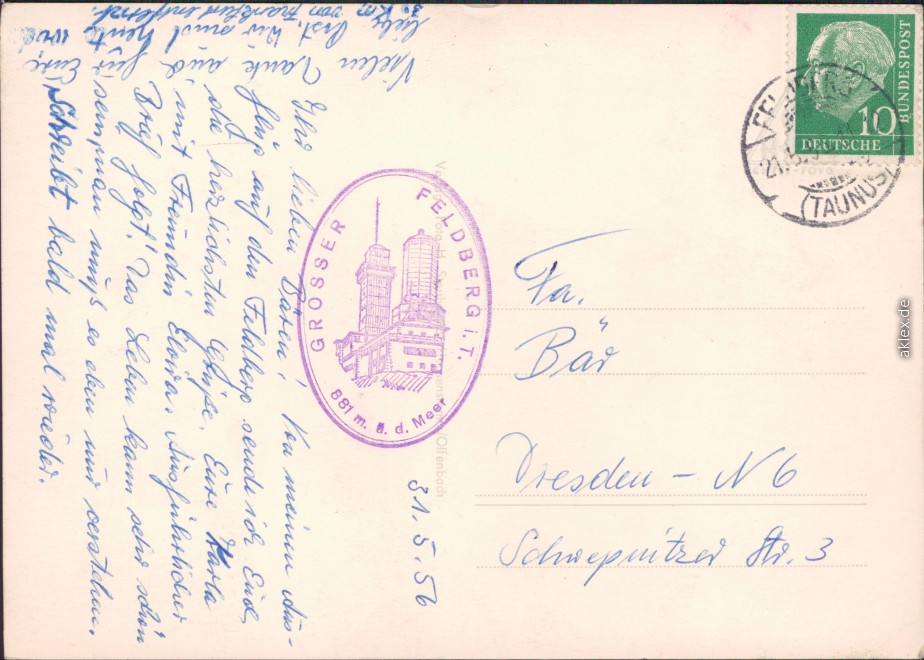 31.5.56
Ihr lieben Bären! Von meinem Aus-
flug auf den Feldberg sende ich Euch
die herzlichsten Grüße. Eure Karla
mit Freundin Elvira. Ausführlicher
Brief folgt. Das Leben kann sehr schön
sein, man muß es eben nur verstehen.
Schreibt bald mal wieder.
Vielen Dank auch für Eure
Wir sind heute
30 km von Frankfurt entfernt.
GROSSER FELDBERG i. T.
881 m. ü. d. Meer
Offenbach
10
DEUTSCHE
BUNDESPOST
FELDBERG
(TAUNUS)
Fa.
Bär
Dresden - N 6
Schwepnitzer Str. 3
aklex.de